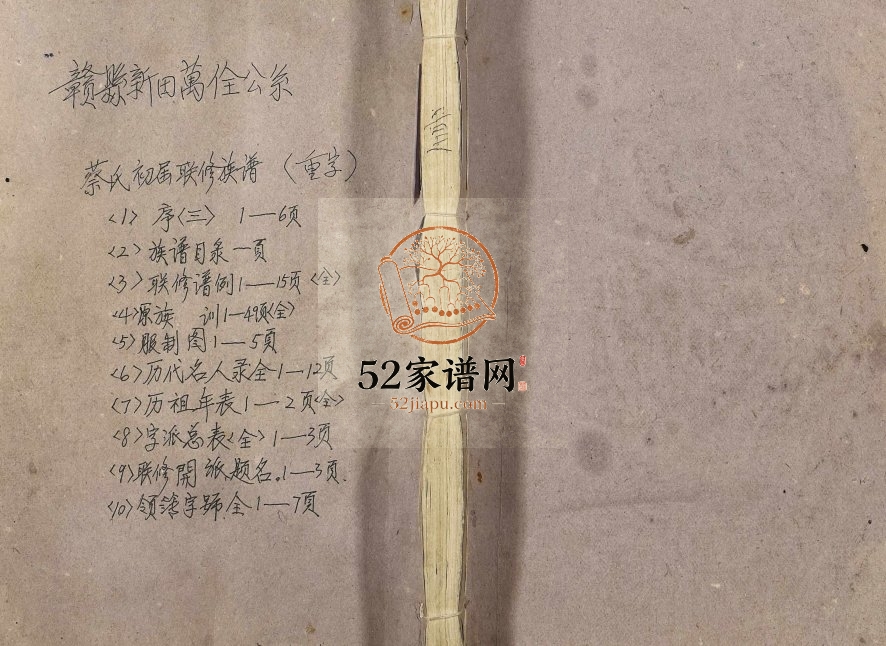 赣縣新田萬佺公系
蔡氏初届联修族谱（重字）
<1> 序<三> 1—6页
<2> 族谱目录 一頁
<3> 联修谱例 1—15页<全>
<4> 原族 训 1—49页<全>
<5> 服制图 1—5頁
<6> 历代名人录全 1—12页
<7> 历祖年表 1—2页<全>
<8> 字派总表<全> 1—3页
<9> 联修開派题名.1—3页.
<10> 领谱字號全 1—7页
壹
52家谱网
52jiapu.com